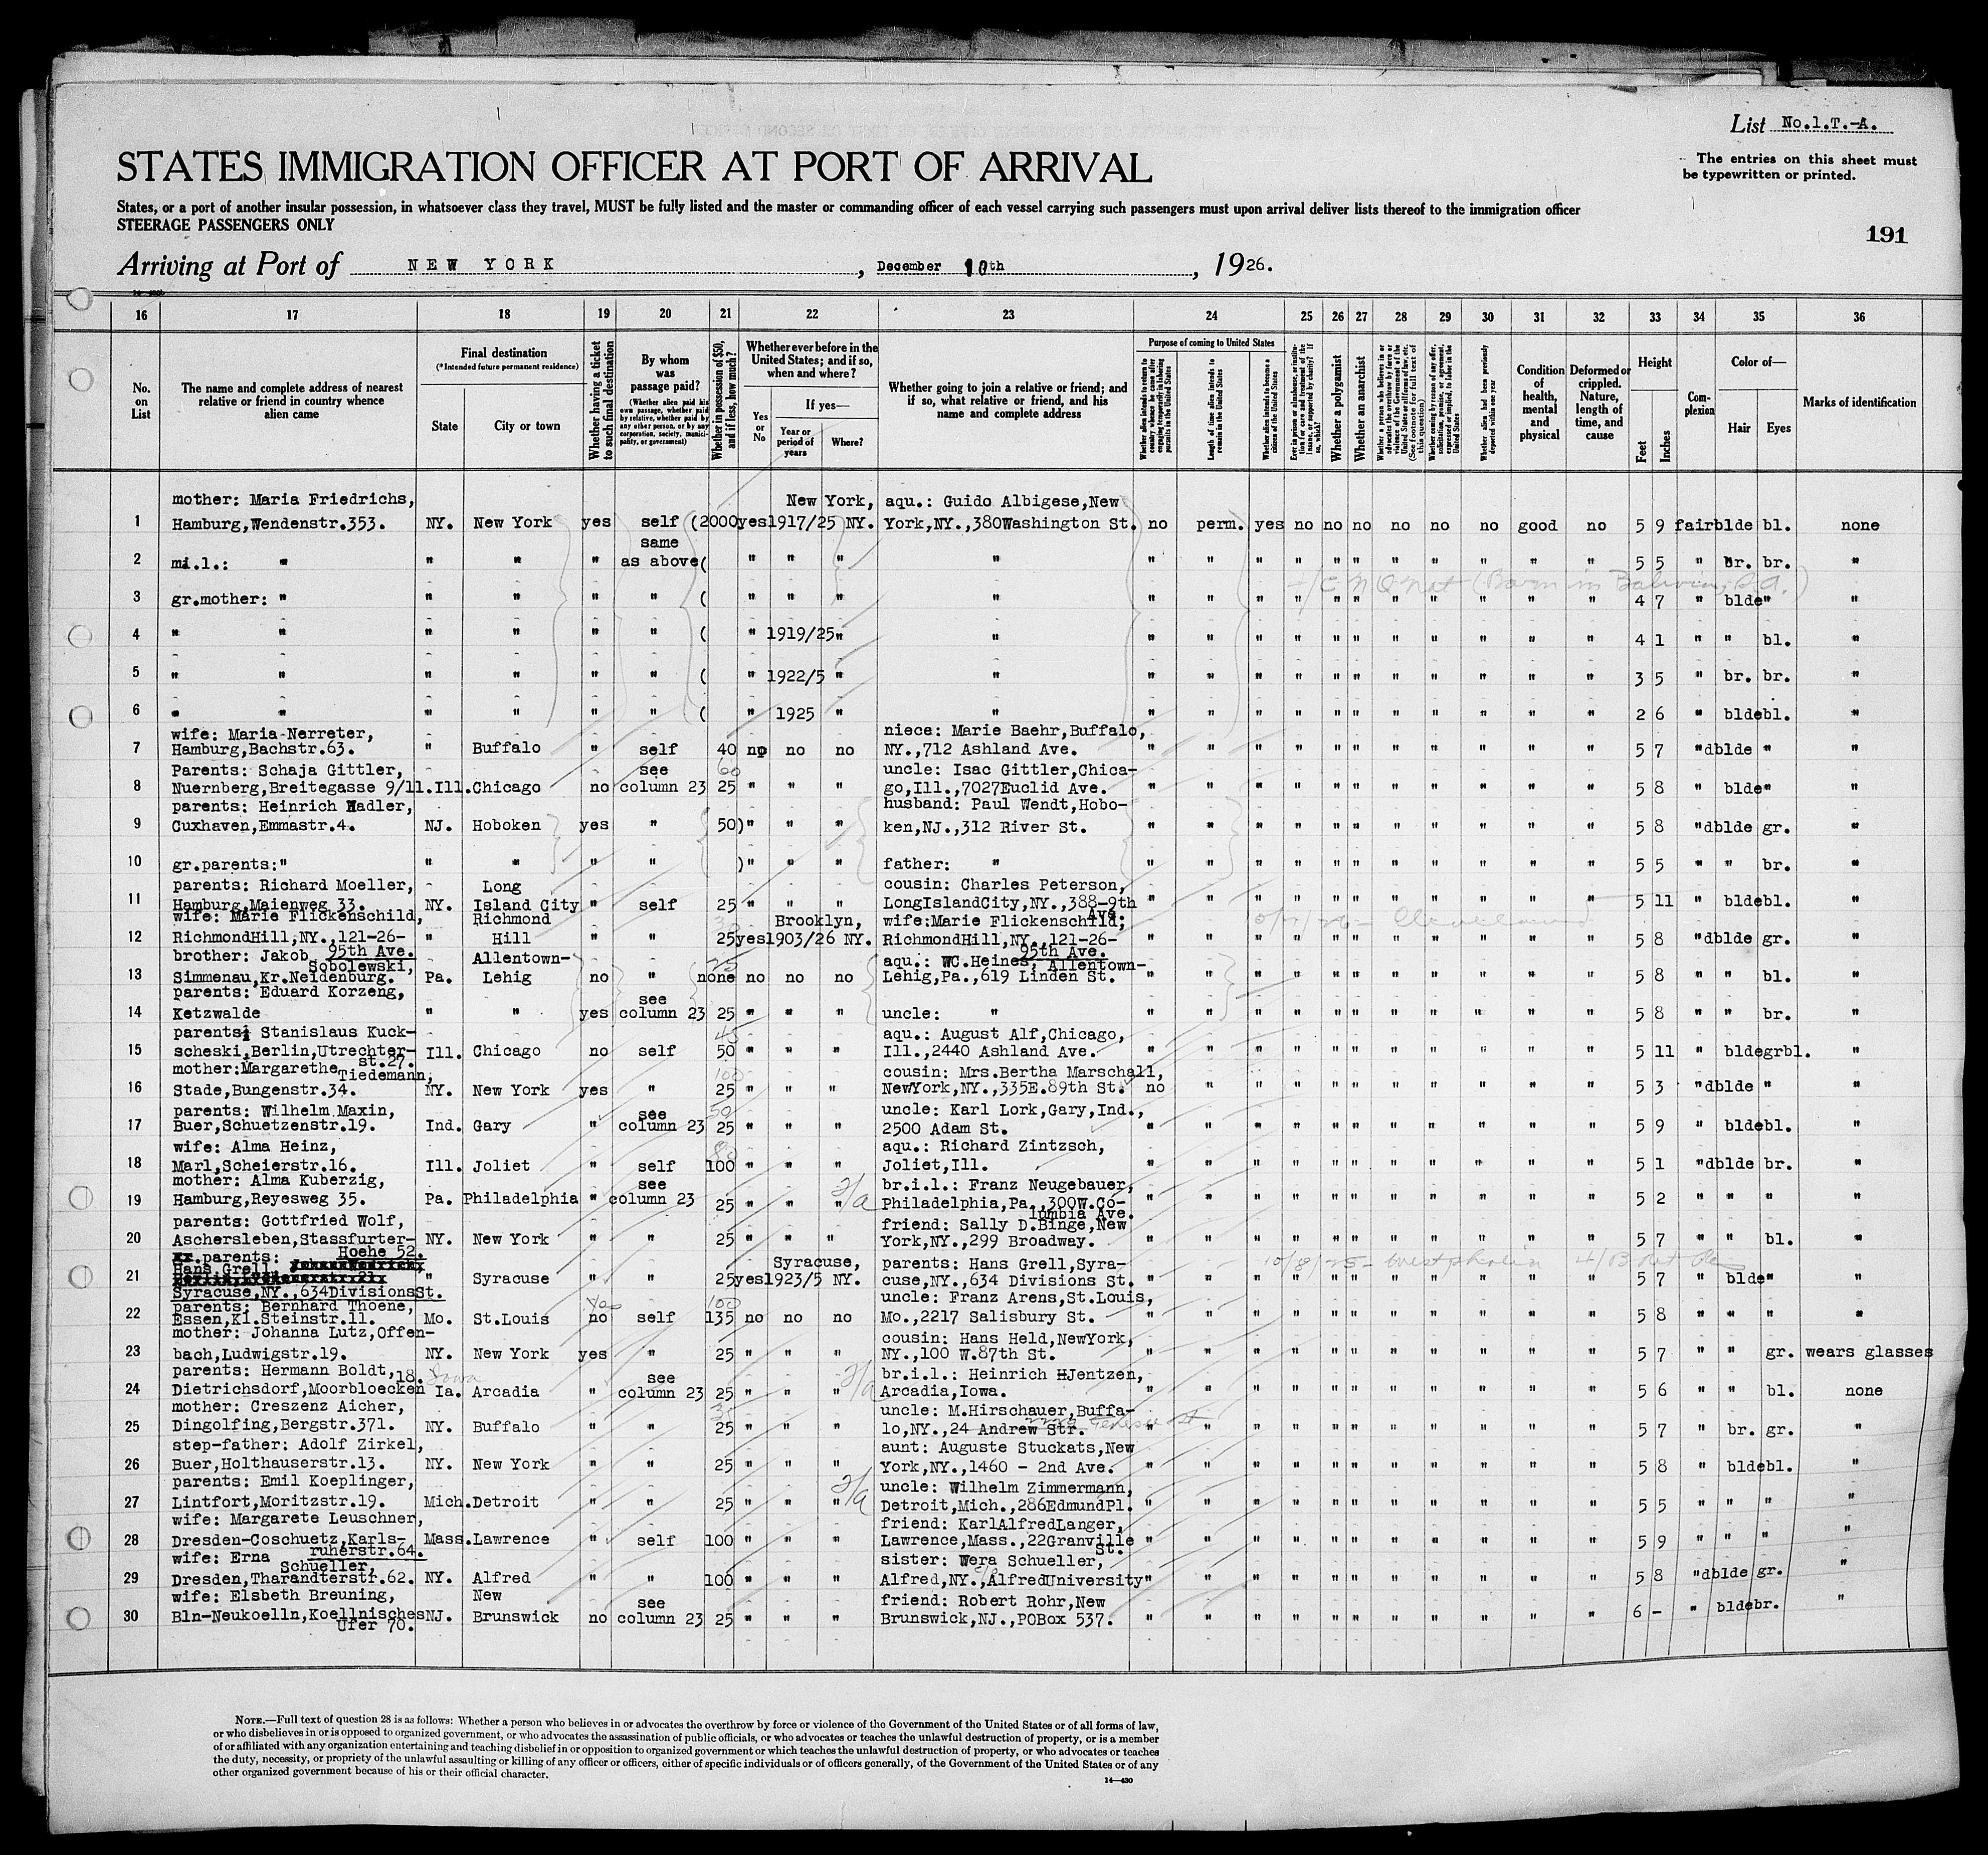 List No.1.T.-A.
STATES IMMIGRATION OFFICER AT PORT OF ARRIVAL
The entries on this sheet must
be typewritten or printed.
States, or a port of another insular possession, in whatsoever class they travel, MUST be fully listed and the master or commanding officer of each vessel carrying such passengers must upon arrival deliver lists thereof to the immigration officer
STEERAGE PASSENGERS ONLY
191
Arriving at Port of NEW YORK, December 10th, 1926.
16 17 18 19 20 21 22 23 24 25 26 27 28 29 30 31 32 33 34 35 36
No. on List
The name and complete address of nearest relative or friend in country whence alien came
Final destination
(*Intended future permanent residence)
State
City or town
Whether having a ticket to such final destination
By whom was passage paid?
(Whether alien paid his own passage, whether paid by relative, whether paid by any other person, or by any corporation, society, municipality, or government)
Whether in possession of $50, and if less, how much?
Whether ever before in the United States; and if so, when and where?
Yes or No
If yes—
Year or period of years
Where?
Whether going to join a relative or friend; and if so, what relative or friend, and his name and complete address
Purpose of coming to United States
Length of time alien intends to remain in the United States
Whether alien intends to become a citizen of the United States
Whether a polygamist
Whether an anarchist
Condition of health, mental and physical
Deformed or crippled. Nature, length of time, and cause
Height
Feet
Inches
Complexion
Color of—
Hair
Eyes
Marks of identification
mother: Maria Friedrichs, New York, aqu.: Guido Albigese,New
1 Hamburg,Wendenstr.353. NY. New York yes self (2000 yes 1917/25 NY. York,NY.,380Washington St. no perm. yes no no no no no no good no 5 9 fair blde bl. none
same
2 mi.l.: " " " " as above( " " " " " " " " " " " " " " " 5 5 " br. br. "
3 gr.mother: " " " " " ( " " " " " " " " " " " " " " " 4 7 " blde " "
4 " " " " " " ( " 1919/25 " " " " " " " " " " " " " 4 1 " " bl. "
5 " " " " " " ( " 1922/5 " " " " " " " " " " " " " 3 5 " br. br. "
6 " " " " " " ( " 1925 " " " " " " " " " " " " " 2 6 " blde bl. "
wife: Maria Nerreter, niece: Marie Baehr,Buffalo,
7 Hamburg,Bachstr.63. " Buffalo " self 40 no no no NY.,712 Ashland Ave. " " " " " " " " " " " 5 7 " dblde " "
Parents: Schaja Gittler, see 60 uncle: Isac Gittler,Chica-
8 Nuernberg,Breitegasse 9/11. Ill. Chicago no column 23 25 " " " go,Ill.,7027Euclid Ave. " " " " " " " " " " " 5 8 " blde " "
parents: Heinrich Wadler, husband: Paul Wendt,Hobo-
9 Cuxhaven,Emmastr.4. NJ. Hoboken yes " 50) " " " ken,NJ.,312 River St. " " " " " " " " " " " 5 8 " dblde gr. "
10 gr.parents: " " " " " ) " " " father: " " " " " " " " " " " " 5 5 " " br. "
parents: Richard Moeller, Long cousin: Charles Peterson,
11 Hamburg,Maienweg 33. NY. Island City " self 25 " " " LongIslandCity,NY.,388-9th " " " " " " " " " " " 5 11 " blde bl. "
Ave.
wife: Marie Flickenschild, Richmond Brooklyn, wife:Marie Flickenschild;
12 RichmondHill,NY.,121-26- " Hill " " 25 yes 1903/26 NY. RichmondHill,NY.,121-26- " " " " " " " " " " " 5 8 " dblde gr. "
95th Ave. 95th Ave.
brother: Jakob Sobolewski, Allentown- aqu.: WC.Heines, Allentown-
13 Simmenau,Kr.Neidenburg. Pa. Lehig no " none no no no Lehig,Pa.,619 Linden St. " " " " " " " " " " " 5 8 " " bl. "
parents: Eduard Korzeng, see
14 Ketzwalde " " yes column 23 25 " " " uncle: " " " " " " " " " " " " 5 8 " " br. "
parents: Stanislaus Kuck- 45 aqu.: August Alf,Chicago,
15 scheski,Berlin,Utrechter- Ill. Chicago no self 50 " " " Ill.,2440 Ashland Ave. " " " " " " " " " " " 5 11 " blde grbl. "
st.27.
mother:Margarethe Tiedemann, 100 cousin: Mrs.Bertha Marschall,
16 Stade,Bungenstr.34. NY. New York yes " 25 " " " NewYork,NY.,335E.89th St. no " " " " " " " " " " 5 3 " dblde " "
parents: Wilhelm Maxin, see 50 uncle: Karl Lork,Gary,Ind.,
17 Buer,Schuetzenstr.19. Ind. Gary " column 23 25 " " " 2500 Adam St. " " " " " " " " " " " 5 9 " blde bl. "
wife: Alma Heinz, aqu.: Richard Zintzsch,
18 Marl,Scheierstr.16. Ill. Joliet " self 100 " " " Joliet,Ill. " " " " " " " " " " " 5 1 " dblde br. "
mother: Alma Kuberzig, see br.i.l.: Franz Neugebauer,
19 Hamburg,Reyesweg 35. Pa. Philadelphia " column 23 25 " " " Philadelphia,Pa.,300W.Co- " " " " " " " " " " " 5 2 " " " "
lumbia Ave.
parents: Gottfried Wolf, friend: Sally D.Binge,New
20 Aschersleben,Stassfurter- NY. New York " " 25 " " " York,NY.,299 Broadway. " " " " " " " " " " " 5 7 " " bl. "
Hoehe 52.
parents: Hans Grell, Syracuse, parents: Hans Grell,Syra-
21 " Syracuse " " 25 yes 1923/5 NY. cuse,NY.,634 Divisions St. " " " " " " " " " " " 5 7 " blde " "
Syracuse,NY.,634DivisionsSt.
parents: Bernhard Thoene, yes 100 uncle: Franz Arens,St.Louis,
22 Essen,Kl.Steinstr.11. Mo. St.Louis no self 135 no no no Mo.,2217 Salisbury St. " " " " " " " " " " " 5 8 " " " "
mother: Johanna Lutz,Offen- cousin: Hans Held,NewYork,
23 bach,Ludwigstr.19. NY. New York yes " 25 " " " NY.,100 W.87th St. " " " " " " " " " " " 5 7 " " gr. wears glasses
parents: Hermann Boldt, 18. Iowa see br.i.l.: Heinrich HJentzen,
24 Dietrichsdorf,Moorbloecken Ia. Arcadia " column 23 25 " " " Arcadia,Iowa. " " " " " " " " " " " 5 6 " " bl. none
mother: Creszenz Aicher, uncle: M.Hirschauer,Buffa-
25 Dingolfing,Bergstr.371. NY. Buffalo " " 25 " " " lo,NY.,24 Andrew Str. " " " " " " " " " " " 5 7 " br. gr. "
step-father: Adolf Zirkel, aunt: Auguste Stuckats,New
26 Buer,Holthauserstr.13. NY. New York " " 25 " " " York,NY.,1460 - 2nd Ave. " " " " " " " " " " " 5 8 " blde bl. "
parents: Emil Koeplinger, uncle: Wilhelm Zimmermann,
27 Lintfort,Moritzstr.19. Mich. Detroit " " 25 " " " Detroit,Mich.,286EdmundPl. " " " " " " " " " " " 5 5 " " " "
wife: Margarete Leuschner, friend: KarlAlfredLanger,
28 Dresden-Coschuetz,Karls- Mass. Lawrence " self 100 " " " Lawrence,Mass.,22Granville " " " " " " " " " " " 5 9 " " " "
ruherstr.64. St.
wife: Erna Schueller, sister: Wera Schueller,
29 Dresden,Tharandterstr.62. NY. Alfred " " 100 " " " Alfred,NY.,AlfredUniversity " " " " " " " " " " " 5 8 " dblde gr. "
wife: Elsbeth Breuning, New see friend: Robert Rohr,New
30 Bln-Neukoelln,Koellnisches NJ. Brunswick no column 23 25 " " " Brunswick,NJ.,POBox 537. " " " " " " " " " " " 6 - " blde br. "
Ufer 70.
NOTE.—Full text of question 28 is as follows: Whether a person who believes in or advocates the overthrow by force or violence of the Government of the United States or of all forms of law,
or who disbelieves in or is opposed to organized government, or who advocates the assassination of public officials, or who advocates or teaches the unlawful destruction of property, or is a member
of or affiliated with any organization entertaining and teaching disbelief in or opposition to organized government or which teaches the unlawful destruction of property, or who advocates or teaches
the duty, necessity, or propriety of the unlawful assaulting or killing of any officer or officers, either of specific individuals or of officers generally, of the Government of the United States or of any
other organized government because of his or their official character.
14—430